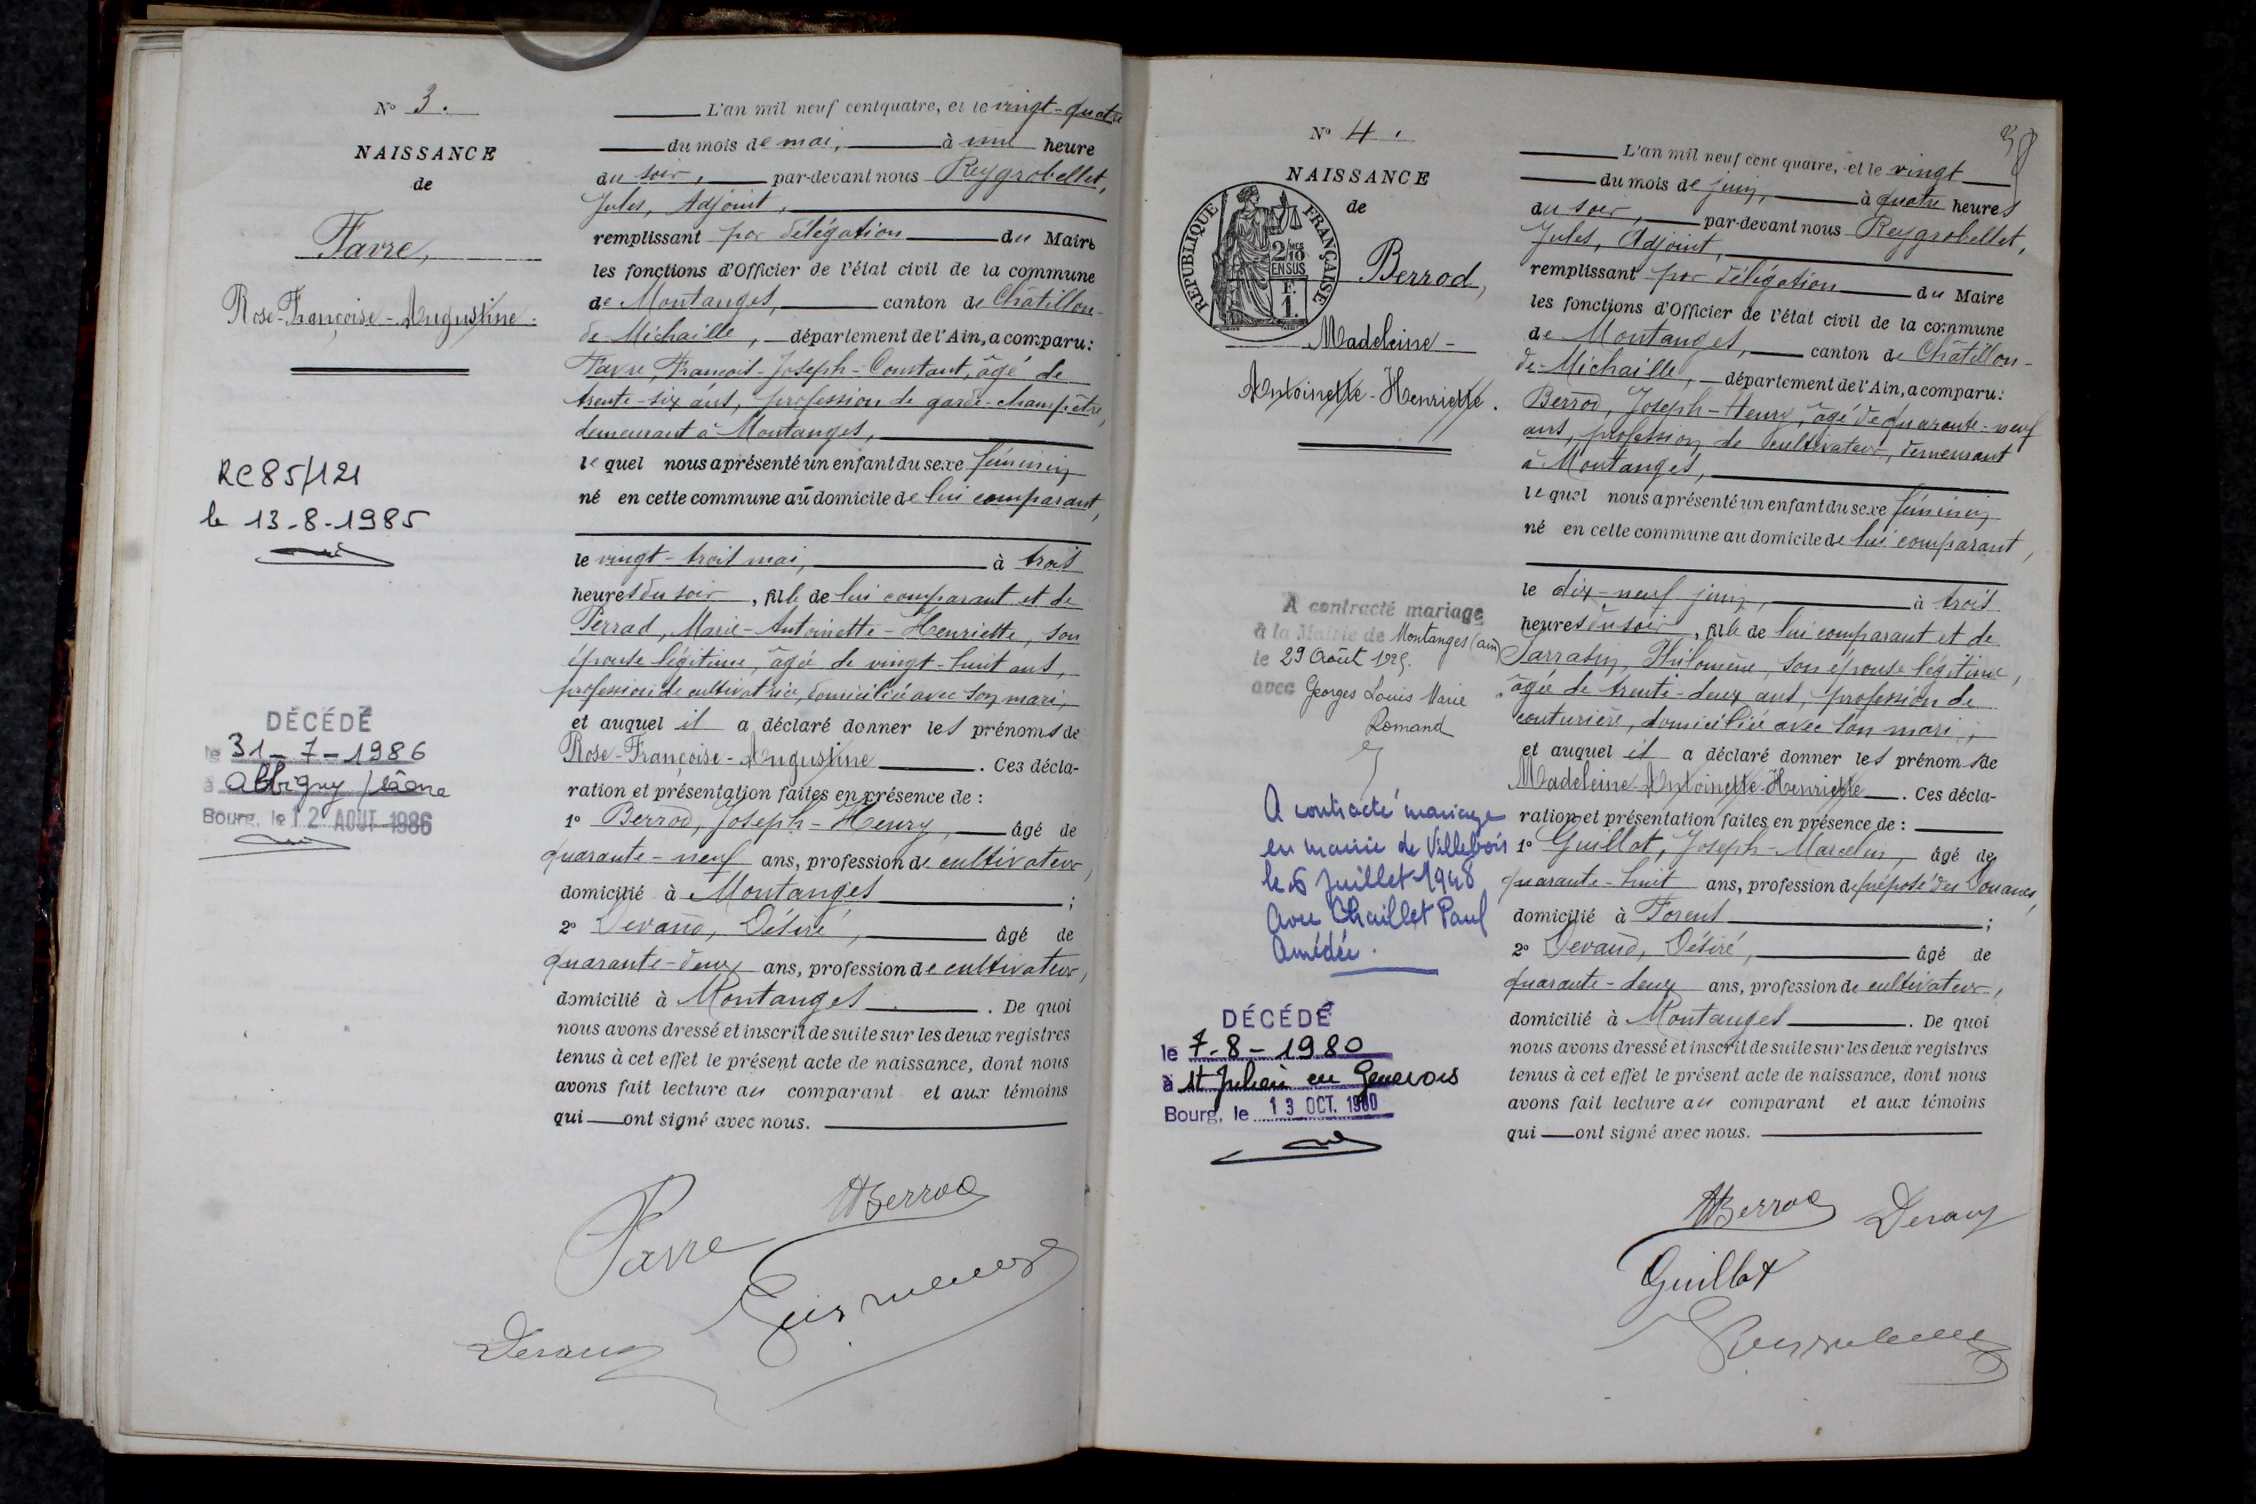 N° 3.
NAISSANCE
de
Favre,
Rose-Françoise-Augustine.
RC 85/121
le 13-8-1985
DÉCÉDÉ
le 31-7-1986
à Albigny /Saône
Bourg, le 12 AOUT 1986
L'an mil neuf cent quatre, et le vingt-quatre
du mois de mai, à une heure
du soir, par-devant nous Reygrobellet,
Jules, Adjoint,
remplissant par délégation du Maire
les fonctions d'Officier de l'état civil de la commune
de Montanges, canton de Châtillon-
de-Michaille, département de l'Ain, a comparu:
Favre, François-Joseph-Constant, âgé de
trente-six ans, profession de garde-champêtre,
demeurant à Montanges,
lequel nous a présenté un enfant du sexe féminin
né en cette commune au domicile de lui comparant,
le vingt-trois mai, à trois
heures du soir, fille de lui comparant et de
Perrad, Marie-Antoinette-Henriette, son
épouse légitime, âgée de vingt-huit ans,
profession de cultivatrice, domiciliée avec son mari,
et auquel il a déclaré donner les prénoms de
Rose-Françoise-Augustine. Ces décla-
ration et présentation faites en présence de :
1° Berrod, Joseph-Henry, âgé de
quarante-neuf ans, profession de cultivateur,
domicilié à Montanges ;
2° Devaud, Désiré, âgé de
quarante-deux ans, profession de cultivateur,
domicilié à Montanges. De quoi
nous avons dressé et inscrit de suite sur les deux registres
tenus à cet effet le présent acte de naissance, dont nous
avons fait lecture au comparant et aux témoins
qui ont signé avec nous.
Favre
HBerrod
Devaud
N° 4.
NAISSANCE
de
RÉPUBLIQUE FRANÇAISE
2/10 MES
EN SUS
F.
1.
Berrod,
Madeleine-
Antoinette-Henriette.
A contracté mariage
à la Mairie de Montanges (ain)
le 29 Août 1925.
avec Georges Louis Marie
Romand
A contracté mariage
en mairie de Villebois
le 6 Juillet 1948
avec Chaillet Paul
Amédée.
DÉCÉDÉ
le 7-8-1980
à St Julien en Genevois
Bourg, le 13 OCT. 1980
38
L'an mil neuf cent quatre, et le vingt
du mois de juin, à quatre heures
du soir, par-devant nous Reygrobellet,
Jules, Adjoint,
remplissant par délégation du Maire
les fonctions d'Officier de l'état civil de la commune
de Montanges, canton de Châtillon-
de-Michaille, département de l'Ain, a comparu:
Berrod, Joseph-Henry, âgé de quarante-neuf
ans, profession de cultivateur, demeurant
à Montanges,
lequel nous a présenté un enfant du sexe féminin
né en cette commune au domicile de lui comparant,
le dix-neuf juin, à trois
heures du soir, fille de lui comparant et de
Sarrasin, Philomène, son épouse légitime,
âgée de trente-deux ans, profession de
couturière, domiciliée avec son mari ;
et auquel il a déclaré donner les prénoms de
Madeleine-Antoinette-Henriette. Ces décla-
ration et présentation faites en présence de :
1° Guillot, Joseph-Marcelin, âgé de
quarante-huit ans, profession de préposé des Douanes,
domicilié à Forens ;
2° Devaud, Désiré, âgé de
quarante-deux ans, profession de cultivateur,
domicilié à Montanges. De quoi
nous avons dressé et inscrit de suite sur les deux registres
tenus à cet effet le présent acte de naissance, dont nous
avons fait lecture au comparant et aux témoins
qui ont signé avec nous.
HBerrod Devaud
Guillot